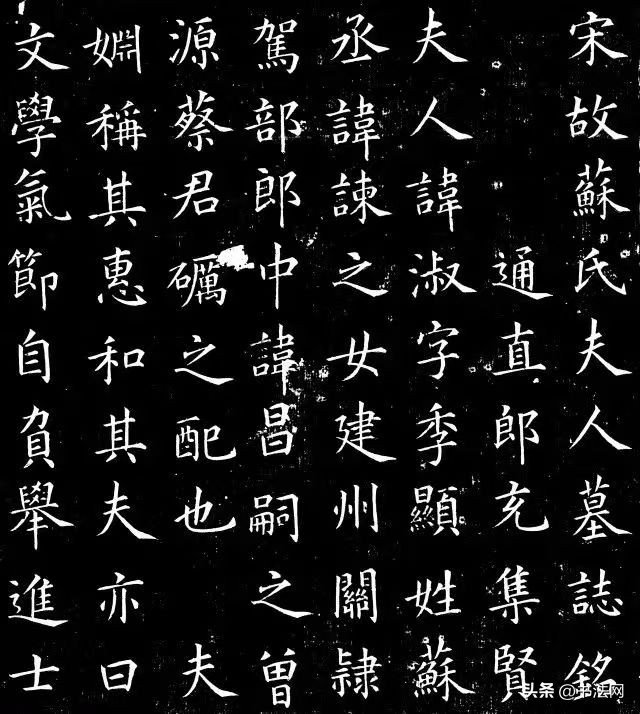 宋故蘇氏夫人墓誌銘
通直郎充集賢
夫人諱淑字季顯姓蘇
丞諱諫之女建州關隸
駕部郎中諱昌嗣之曾
源蔡君礪之配也 夫
婣稱其惠和其夫亦曰
文學氣節自負舉進士
头条 @书法网